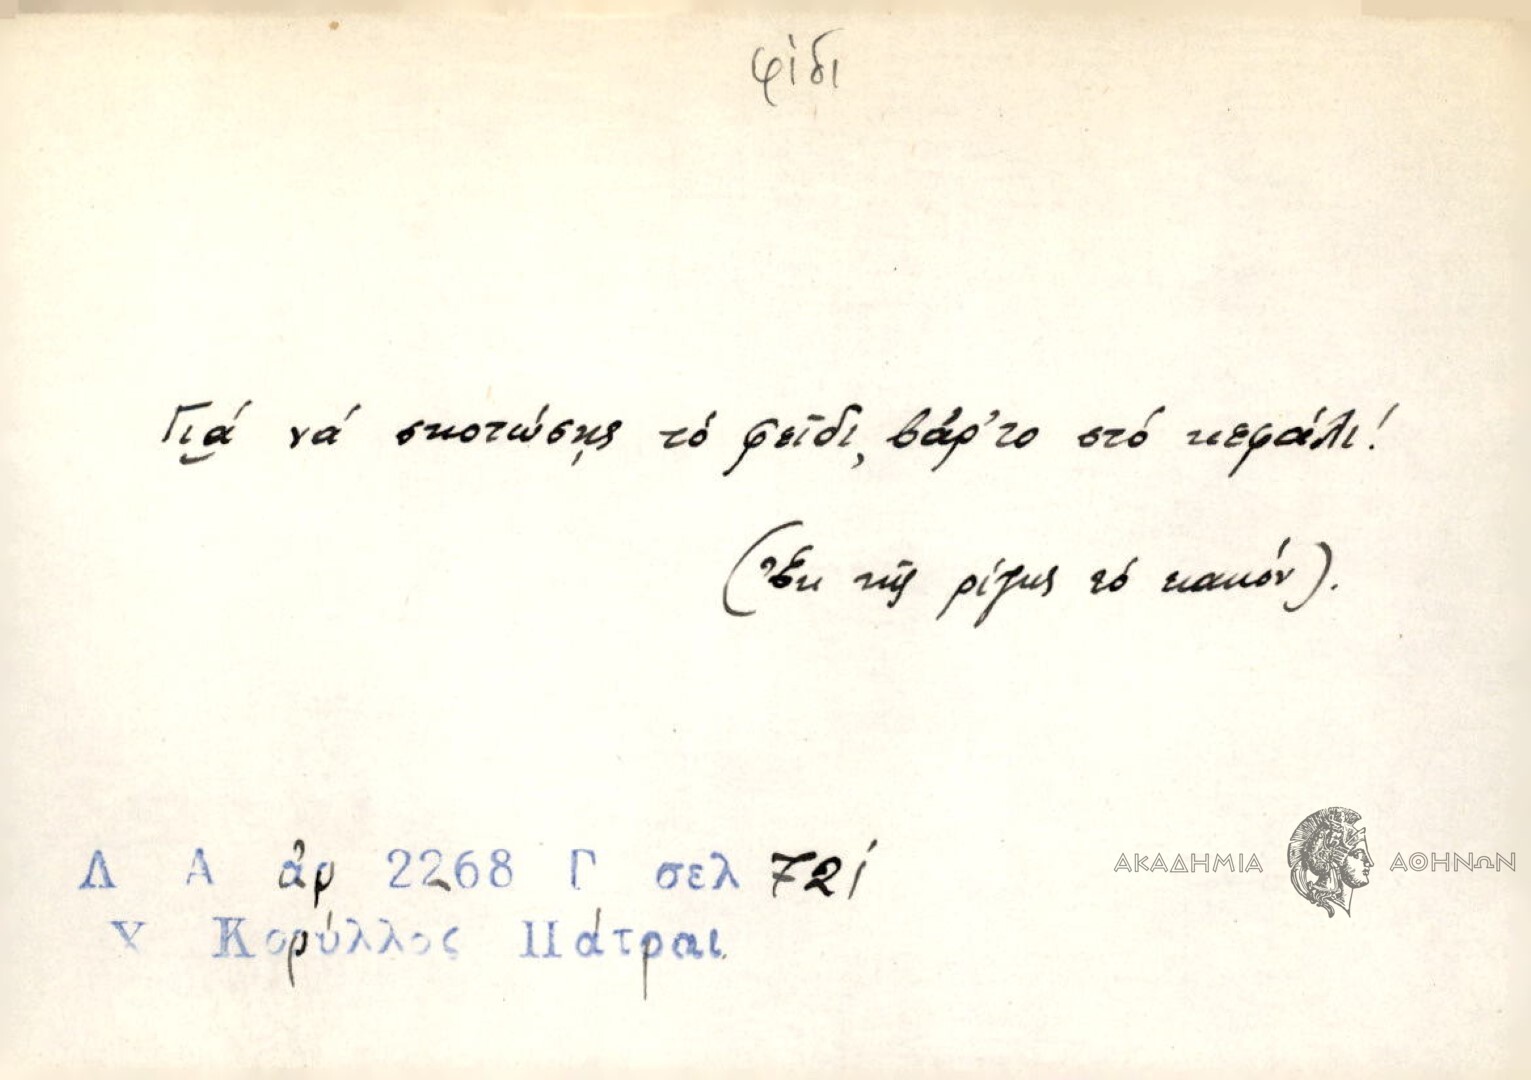 φίδι
Γιά νά σκοτώσῃς τό φεῖδι, βάρ'το στό κεφάλι!
(Ἐκ τῆς ρίζης τό κακόν).
Λ Α ἀρ 2268 Γ σελ 721
Χ Κορύλλος Πάτραι
ΑΚΑΔΗΜΙΑ ΑΘΗΝΩΝ